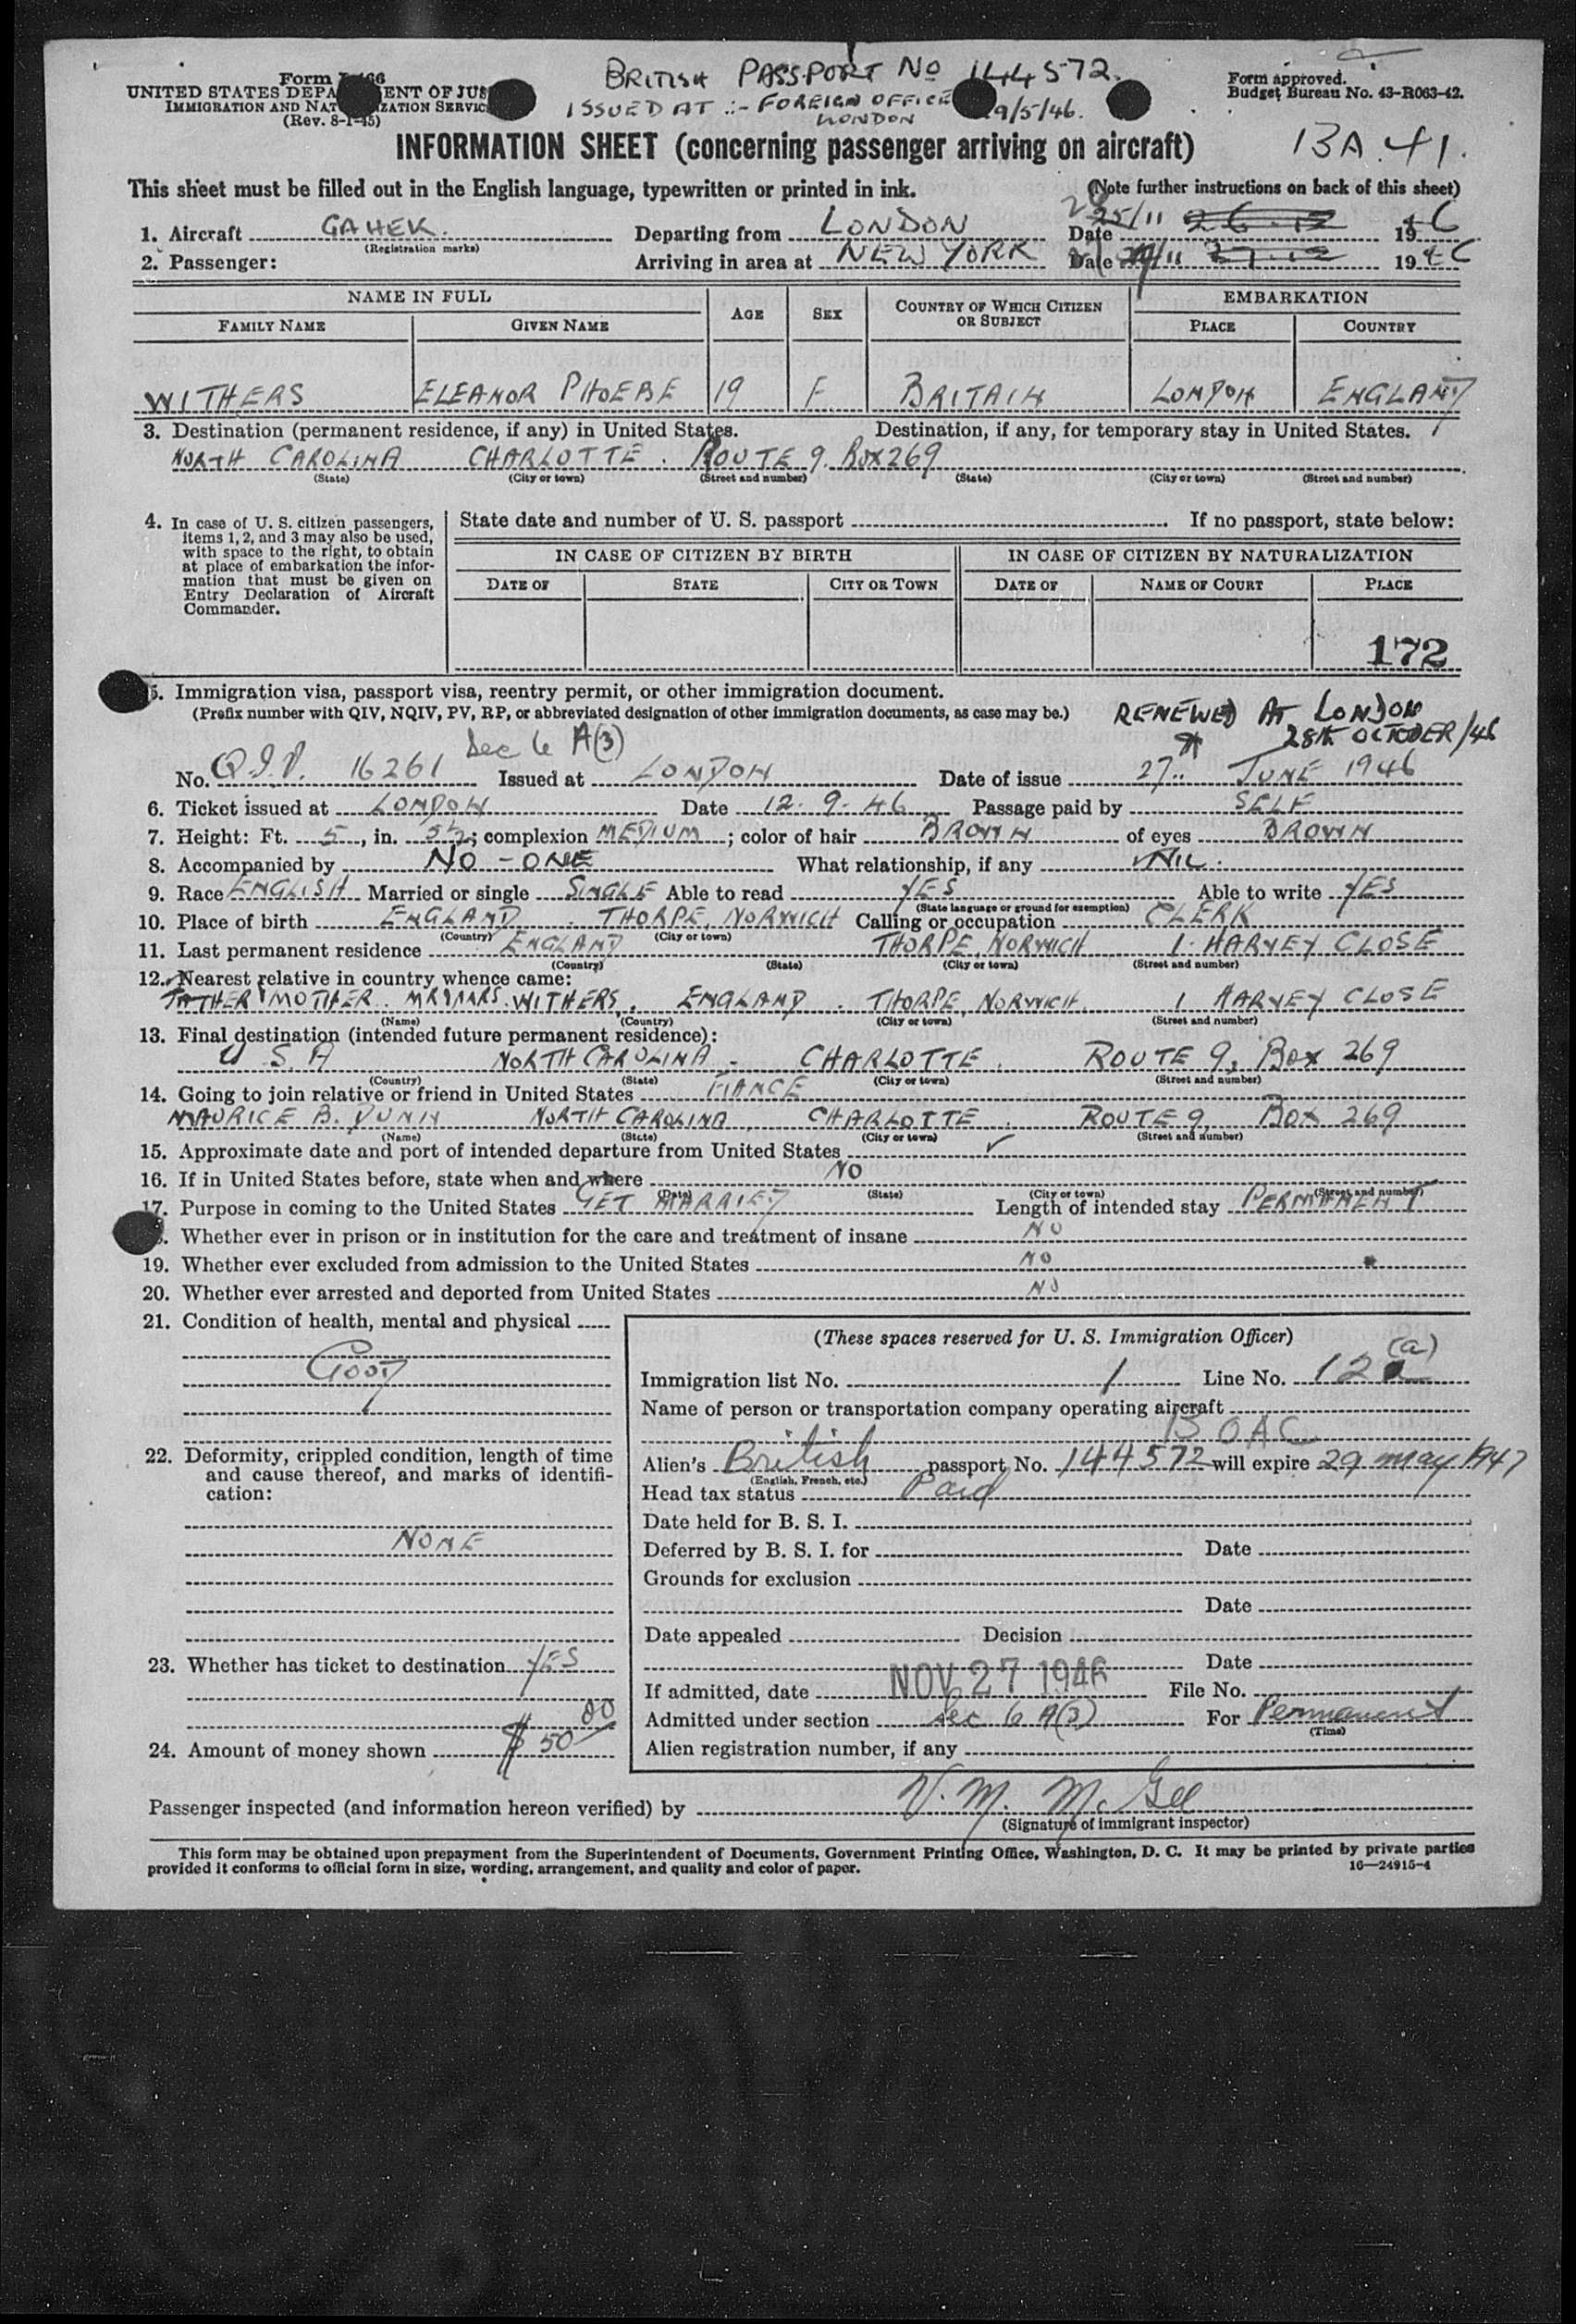 Form I-466
UNITED STATES DEPARTMENT OF JUS
IMMIGRATION AND NATURALIZATION SERVIC
(Rev. 8-1-45)
BRITISH PASSPORT No 144572.
ISSUED AT :- FOREIGN OFFICE 29/5/46.
LONDON
Form approved.
Budget Bureau No. 43-R063-42.
INFORMATION SHEET (concerning passenger arriving on aircraft)
BA.41.
This sheet must be filled out in the English language, typewritten or printed in ink. (Note further instructions on back of this sheet)
1. Aircraft GAHEK. Departing from LONDON Date 25/11 26.12 1946
(Registration marks)
2. Passenger: Arriving in area at NEW YORK Date /11 27.12 1946
NAME IN FULL AGE SEX COUNTRY OF WHICH CITIZEN OR SUBJECT EMBARKATION
FAMILY NAME GIVEN NAME PLACE COUNTRY
WITHERS ELEANOR PHOEBE 19 F BRITAIN LONDON ENGLAND
3. Destination (permanent residence, if any) in United States. Destination, if any, for temporary stay in United States.
NORTH CAROLINA CHARLOTTE. ROUTE 9. BOX 269
(State) (City or town) (Street and number) (State) (City or town) (Street and number)
4. In case of U. S. citizen passengers, items 1, 2, and 3 may also be used, with space to the right, to obtain at place of embarkation the information that must be given on Entry Declaration of Aircraft Commander.
State date and number of U. S. passport If no passport, state below:
IN CASE OF CITIZEN BY BIRTH IN CASE OF CITIZEN BY NATURALIZATION
DATE OF STATE CITY OR TOWN DATE OF NAME OF COURT PLACE
172
5. Immigration visa, passport visa, reentry permit, or other immigration document.
(Prefix number with QIV, NQIV, PV, RP, or abbreviated designation of other immigration documents, as case may be.)
RENEWED AT LONDON
28th OCTOBER/46
Sec 6 A(3)
No. Q.I.V. 16261 Issued at LONDON Date of issue 27th JUNE 1946
6. Ticket issued at LONDON Date 12.9.46 Passage paid by SELF
7. Height: Ft. 5, in. 5½; complexion MEDIUM; color of hair BROWN of eyes BROWN
8. Accompanied by NO-ONE What relationship, if any NIL.
9. Race ENGLISH Married or single SINGLE Able to read YES Able to write YES
(State language or ground for exemption)
10. Place of birth ENGLAND. THORPE, NORWICH Calling or occupation CLERK
(Country) (City or town)
11. Last permanent residence ENGLAND THORPE, NORWICH 1. HARVEY CLOSE
(Country) (State) (City or town) (Street and number)
12. Nearest relative in country whence came:
FATHER & MOTHER. MR & MRS. WITHERS, ENGLAND. THORPE, NORWICH. 1 HARVEY CLOSE
(Name) (Country) (City or town) (Street and number)
13. Final destination (intended future permanent residence):
U S.A NORTH CAROLINA - CHARLOTTE. ROUTE 9, Box 269
(Country) (State) (City or town) (Street and number)
14. Going to join relative or friend in United States FIANCE
MAURICE B. DUNN NORTH CAROLINA, CHARLOTTE. ROUTE 9, BOX 269
(Name) (State) (City or town) (Street and number)
15. Approximate date and port of intended departure from United States ✓
16. If in United States before, state when and where NO
(Date) (State) (City or town) (Street and number)
17. Purpose in coming to the United States GET MARRIED Length of intended stay PERMANENT
18. Whether ever in prison or in institution for the care and treatment of insane NO
19. Whether ever excluded from admission to the United States NO
20. Whether ever arrested and deported from United States NO
21. Condition of health, mental and physical
GOOD
22. Deformity, crippled condition, length of time and cause thereof, and marks of identification:
NONE
23. Whether has ticket to destination YES
24. Amount of money shown $50 00
(These spaces reserved for U. S. Immigration Officer)
Immigration list No. 1 Line No. 12 (a)
Name of person or transportation company operating aircraft
BOAC
Alien's British passport No. 144572 will expire 29 may 1947
(English, French, etc.)
Head tax status Paid
Date held for B. S. I.
Deferred by B. S. I. for Date
Grounds for exclusion
Date
Date appealed Decision
Date
If admitted, date NOV 27 1946 File No.
Admitted under section Sec 6 A(3) For Permanent
(Time)
Alien registration number, if any
Passenger inspected (and information hereon verified) by V. M. McGee
(Signature of immigrant inspector)
This form may be obtained upon prepayment from the Superintendent of Documents, Government Printing Office, Washington, D. C. It may be printed by private parties
provided it conforms to official form in size, wording, arrangement, and quality and color of paper. 16—24915-4